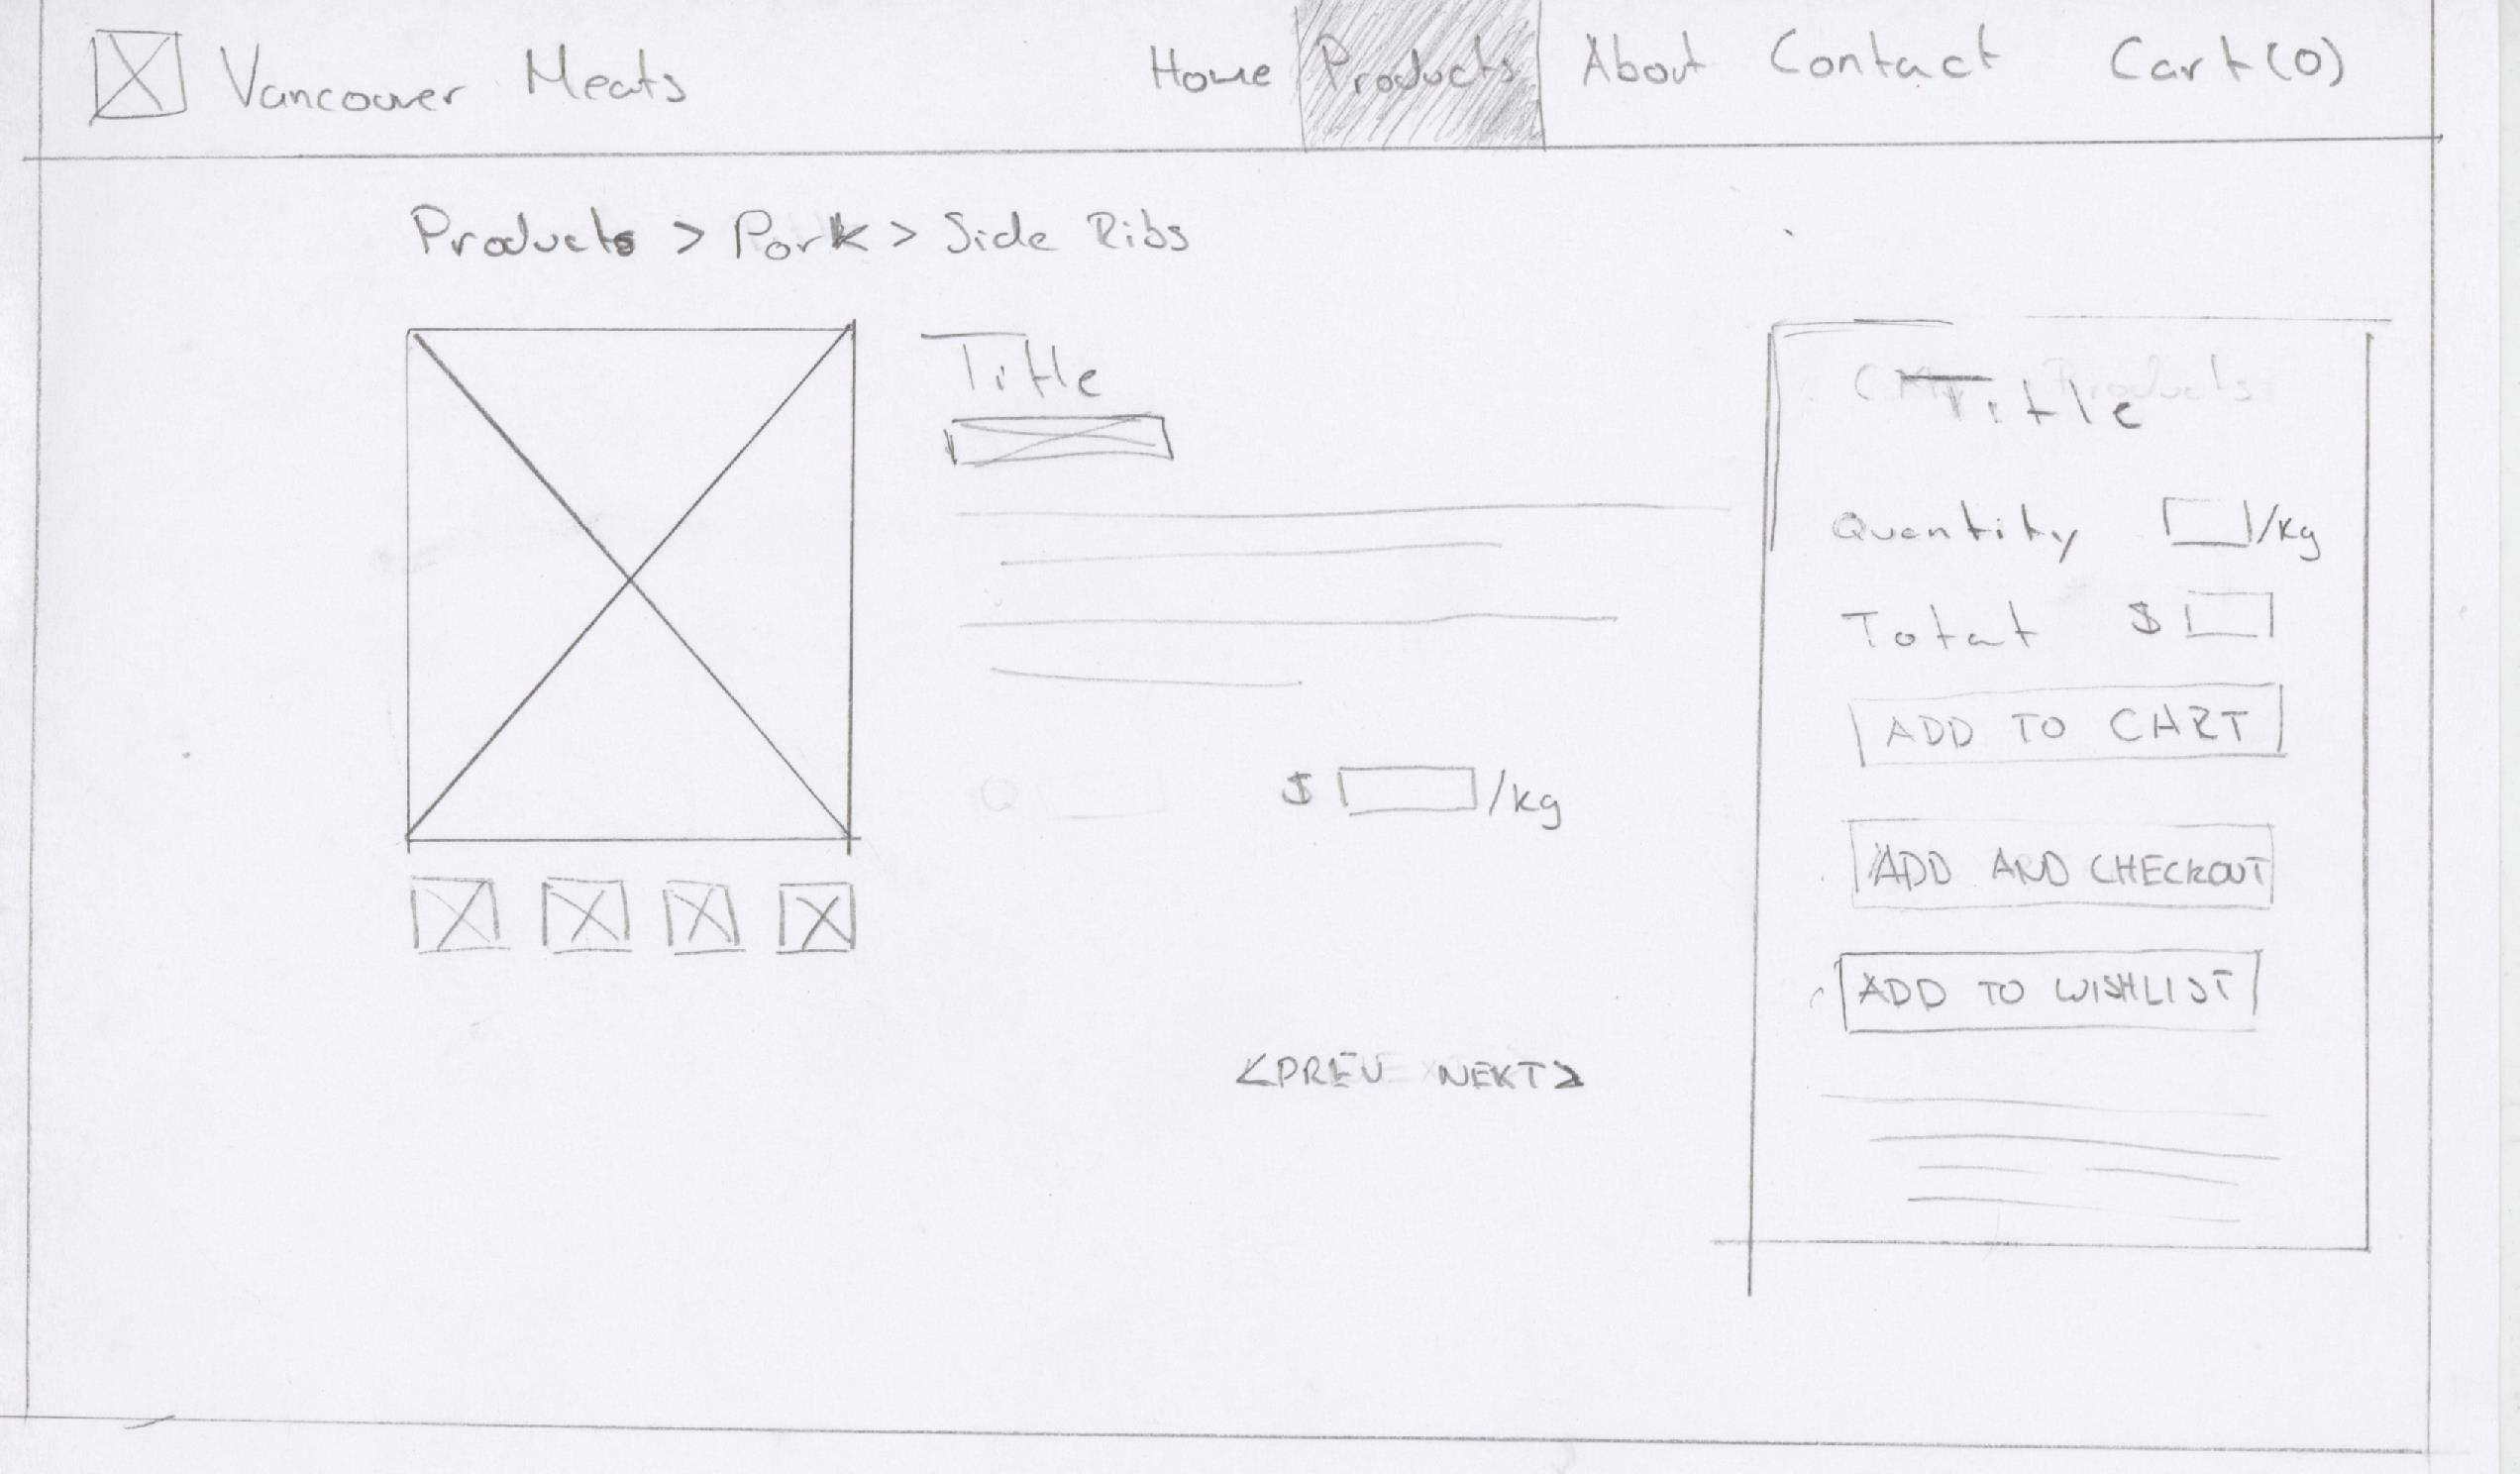 Vancouver Meats Home Products About Contact Cart (0)
Products > Pork > Side Ribs
Title
$ /kg
<PREV NEXT>
Title
Quantity /kg
Total $
ADD TO CART
ADD AND CHECKOUT
ADD TO WISHLIST